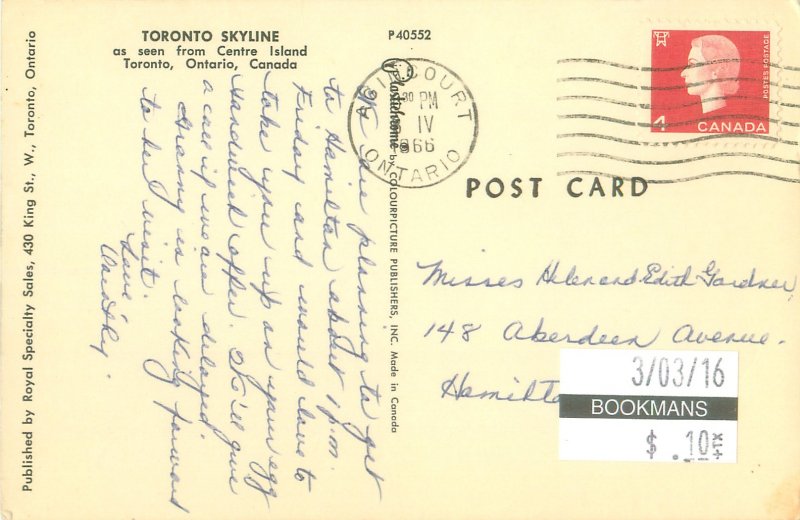 TORONTO SKYLINE
as seen from Centre Island
Toronto, Ontario, Canada
P40552
Published by Royal Specialty Sales, 430 King St., W., Toronto, Ontario
Plastichrome by COLOURPICTURE PUBLISHERS, INC. Made in Canada
AGINCOURT
30 PM
IV
1966
ONTARIO
4
CANADA
POSTES POSTAGE
POST CARD
We are planning to get
to Hamilton about 1 p.m.
Friday and would love to
take you up on your egg
sandwich offer. I'll give
a call if we are delayed.
Granny is looking forward
to her visit.
Love
Dorothy.
Misses Helen and Edith Gardner
148 Aberdeen Avenue.
3/03/16
BOOKMANS
$ .10 +TX